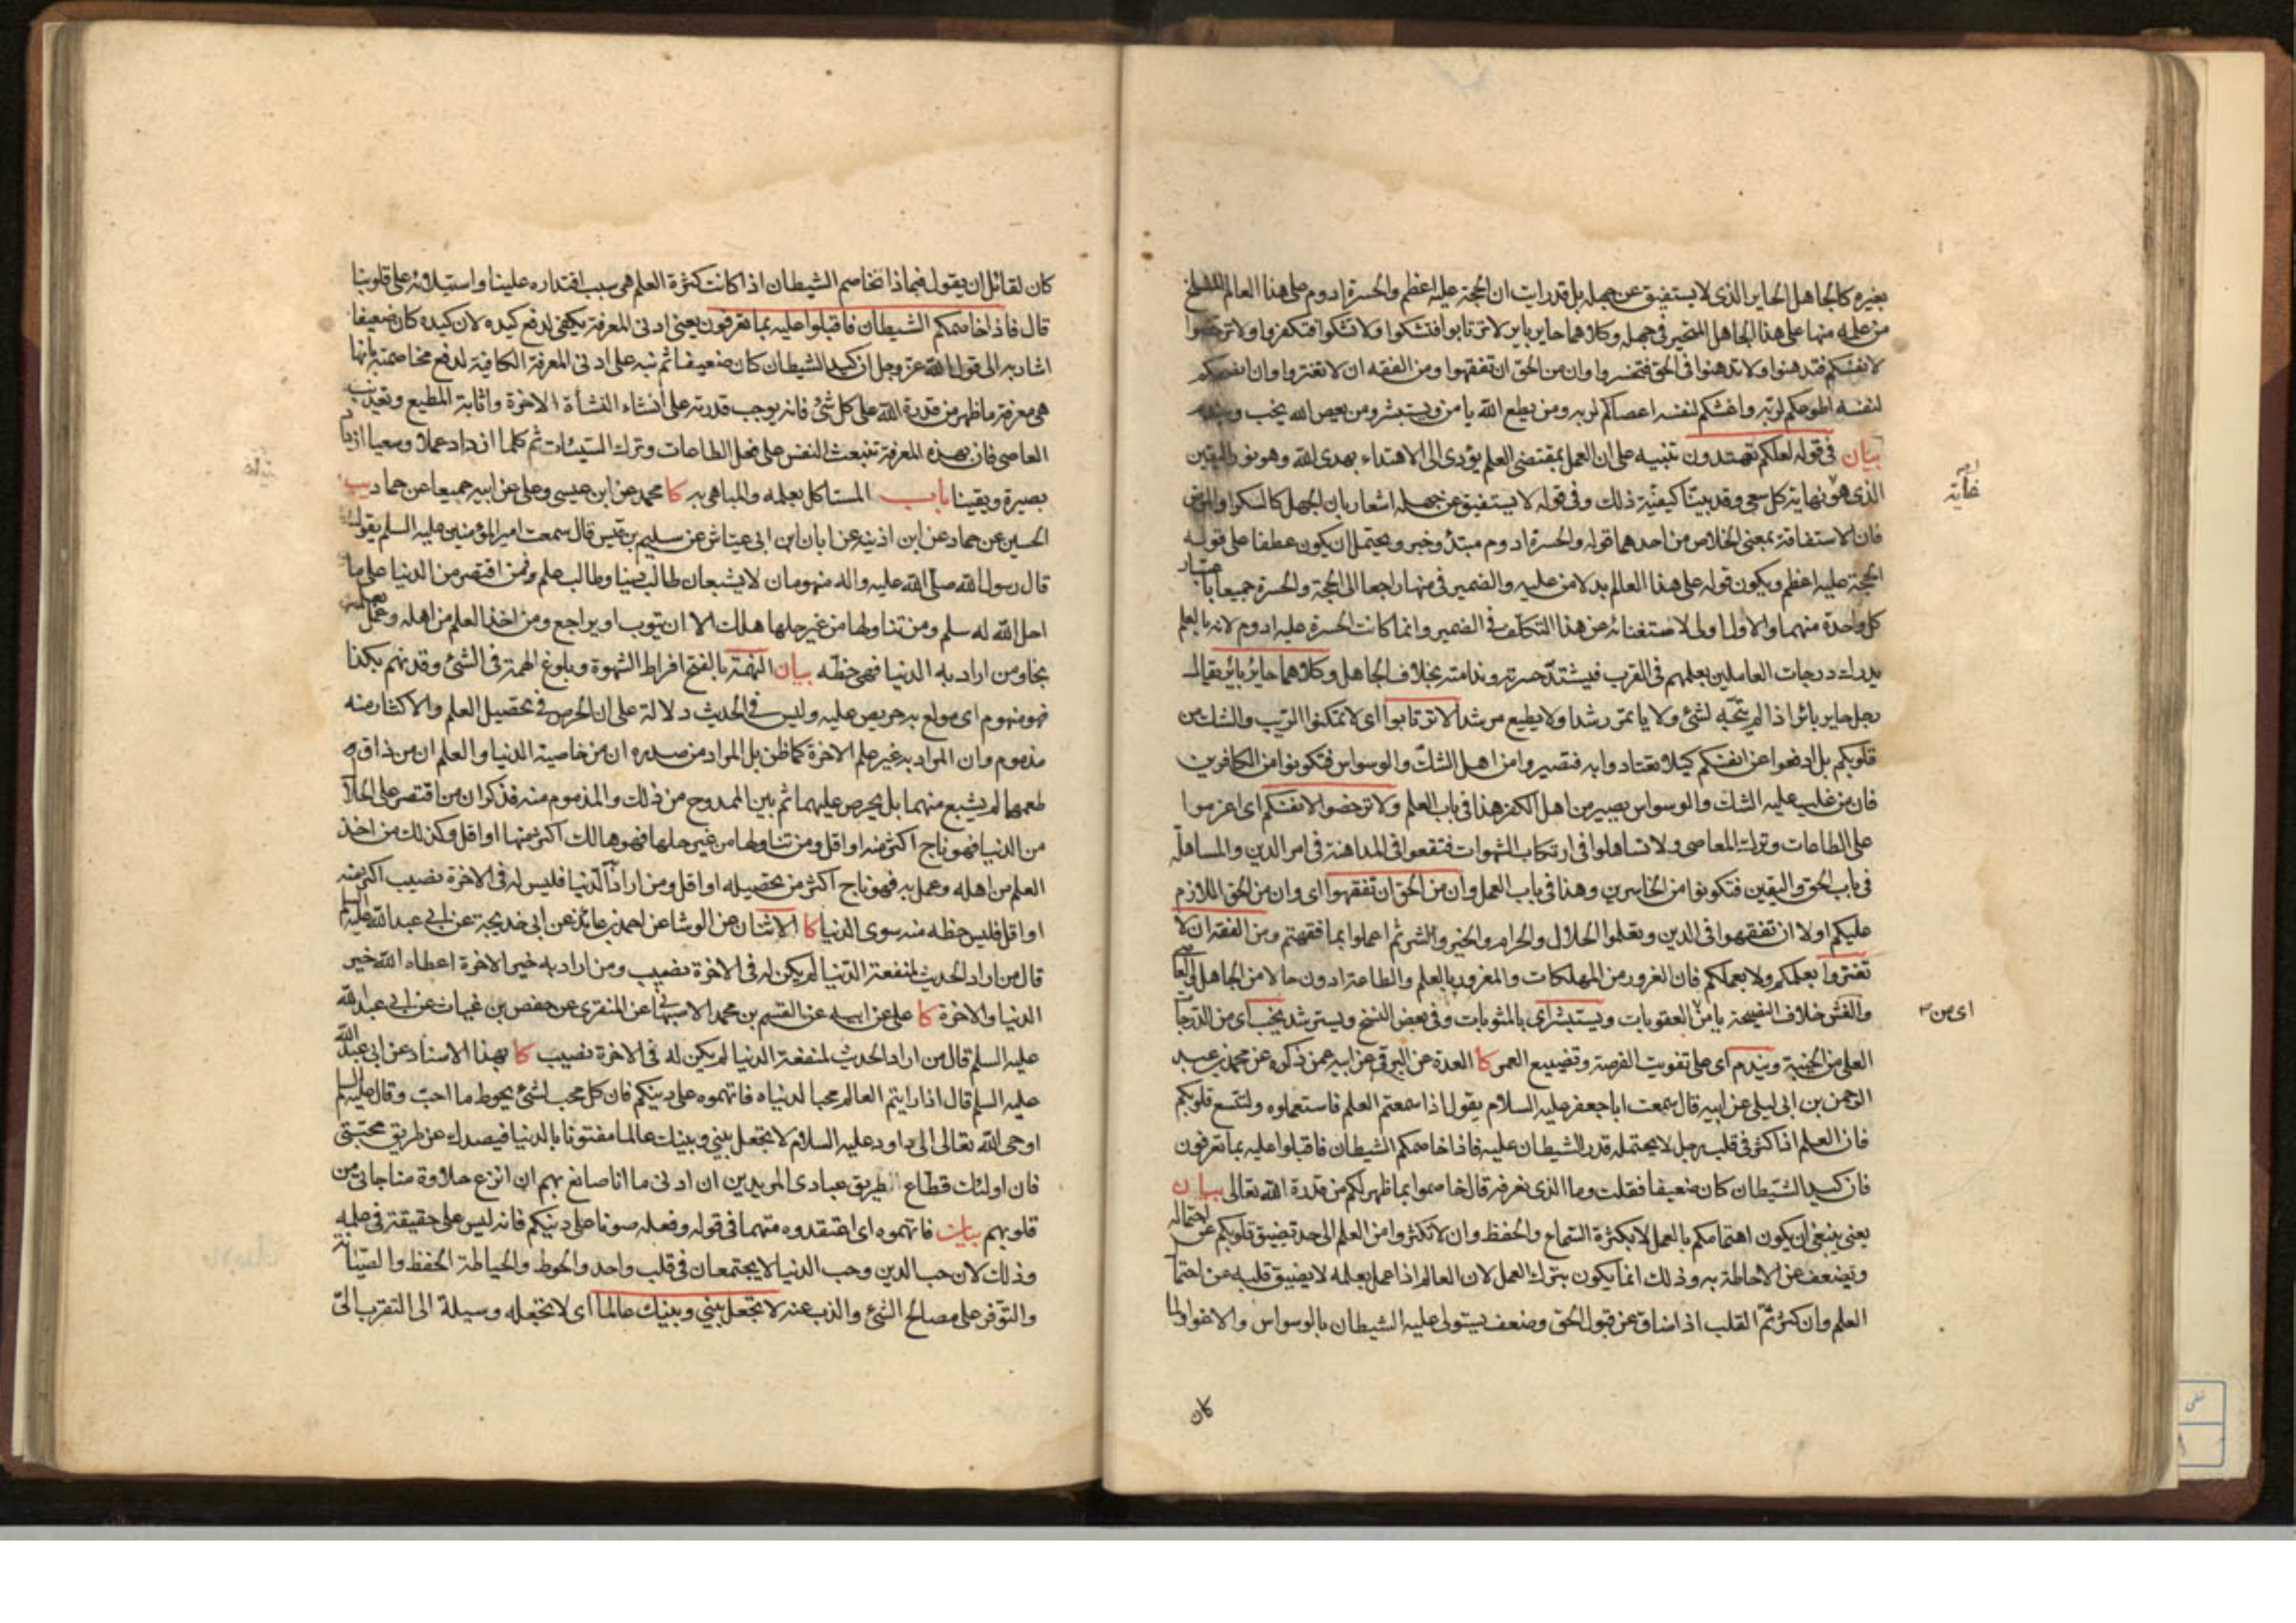 بغيره كالجاهل الحاير الذي لا يستفيق عن جهله بل قد رايت ان الحجة عليه اعظم والحسرة ادوم على هذا العالم المنسلخ
من علمه منها على هذا الجاهل المتحير في جهله وكلاهما حاير باير لا ترتابوا فتشكوا ولا تشكوا فتكفروا ولا ترخصوا
لانفسكم فتدهنوا ولا تدهنوا في الحق فتخسروا وان من الحق ان تفقهوا ومن الفقه ان لا تغتروا وان انصحكم
لنفسه اطوعكم لربه واغشكم لنفسه اعصاكم لربه ومن يطع الله يامن ويستبشر ومن يعص الله يخب ويندم
بيان في قوله لعلكم تهتدون تنبيه على ان العمل بمقتضى العلم يؤدى الى الاهتداء بهدى الله وهو نور اليقين
الذي هو نهاية كل سعى وقد بينا كيفية ذلك وفي قوله لا يستفيق عن جهله اشعار بان الجهل كالسكر او المرض
غاية
فان الاستفاقة بمعنى الخلاص من احدهما قوله والحسرة ادوم مبتدأ وخبر ويحتمل ان يكون عطفا على قوله
الحجة عليه اعظم ويكون قوله على هذا العالم بدلا من عليه والضمير في منها راجعا الى الحجة والحسرة جميعا باعتبار
كل واحدة منهما والاول اولى لاستغنائه عن هذا التكلف في الضمير وانما كانت الحسرة عليه ادوم لانه بالعلم
يدرك درجات العاملين بعلمهم في القرب فيشتد حسرته وندامته بخلاف الجاهل وكلاهما حاير باير يقال
رجل حاير بائر اذا لم يتجه لشئ ولا ياتمر رشدا ولا يطيع مرشدا لا ترتابوا اى لا تمكنوا الريب والشك من
قلوبكم بل ادفعوا عن انفسكم كيلا تعتادوا به فتصيروا من اهل الشك والوسواس فتكونوا من الكافرين
فان من غلب عليه الشك والوسواس يصير من اهل الكفر هذا في باب العلم ولا ترخصوا لانفسكم اى اعزموا
على الطاعات وترك المعاصى ولا تساهلوا في ارتكاب الشهوات فتقعوا في المداهنة في امر الدين والمساهلة
في باب الحق واليقين فتكونوا من الخاسرين وهذا في باب العمل وان من الحق ان تفقهوا اى وان من الحق اللازم
عليكم اولا ان تفقهوا في الدين وتعلموا الحلال والحرام والخير والشر ثم اعملوا بما فقهتم ومن الفقه ان لا
تغتروا بعلمكم ولا بعملكم فان الغرور من المهلكات والمغرور بالعلم والطاعة ادون حالا من الجاهل العاصى
والغش خلاف النصيحة يامن العقوبات ويستبشر اى بالمثوبات وفي بعض النسخ ويسترشد يخب اى من الدرجات
اى من
العلى من الخيبة ويندم اى على تفويت الفرصة وتضييع العمر كا العدة عن البرقى عن ابيه عمن ذكره عن محمد بن عبد
الرحمن بن ابى ليلى عن ابيه قال سمعت ابا جعفر عليه السلام يقول اذا سمعتم العلم فاستعملوه ولتتسع قلوبكم
فان العلم اذا كثر في قلب رجل لا يحتمله قدر الشيطان عليه فاذا خاصمكم الشيطان فاقبلوا عليه بما تعرفون
فان كيد الشيطان كان ضعيفا فقلت وما الذى نعرفه قال خاصموا بما ظهر لكم من قدرة الله تعالى بيان
يعنى ينبغي ان يكون اهتمامكم بالعمل لا بكثرة السماع والحفظ وان لا تكثروا من العلم الى حد تضيق قلوبكم عن احتماله
وتضعف عن الاحاطة به وذلك انما يكون بترك العمل لان العالم اذا عمل بعلمه لا يضيق قلبه عن احتمال
العلم وان كثر ثم القلب اذا ضاق عن قبول الحق وضعف يستولى عليه الشيطان بالوسواس والاغوا ولما
كان
كان لقائل ان يقول فبماذا نخاصم الشيطان اذا كانت كثرة العلم هى سبب اقتداره علينا واستيلائه على قلوبنا
قال فاذا خاصمكم الشيطان فاقبلوا عليه بما تعرفون يعنى ادنى المعرفة يكفى لدفع كيده لان كيده كان ضعيفا
اشار به الى قول الله عز وجل ان كيد الشيطان كان ضعيفا ثم نبه على ادنى المعرفة الكافية لدفع مخاصمته بانها
هى معرفة ما ظهر من قدرة الله على كل شئ فانه يوجب قدرته على انشاء النشأة الاخرة واثابة المطيع وتعذيب
العاصى فان بهذه المعرفة تنبعث النفس على فعل الطاعات وترك السيئات ثم كلما ازداد عملا وسعيا ازداد
بصيرة ويقينا باب المستاكل بعلمه والمباهى به كا محمد عن ابن عيسى وعلى عن ابيه جميعا عن حماد يب
الحسين عن حماد عن ابن اذينه عن ابان ابن ابى عياش عن سليم بن قيس قال سمعت امير المؤمنين عليه السلم يقول
قال رسول الله صلى الله عليه واله منهومان لا يشبعان طالب دنيا وطالب علم فمن اقتصر من الدنيا على ما
احل الله له سلم ومن تناولها من غير حلها هلك الا ان يتوب او يراجع ومن اخذ العلم من اهله وعمل بعلمه
نجا ومن اراد به الدنيا فهى حظه بيان النهمة بالفتح افراط الشهوة وبلوغ الهمة في الشئ وقد نهم بكذا
فهو منهوم اى مولع به حريص عليه وليس في الحديث دلالة على ان الحرص في تحصيل العلم والاكثار منه
مذموم وان المراد به غير علم الاخرة كما ظن بل المراد من صدره ان من خاصية الدنيا والعلم ان من ذاق
طعمها لم يشبع منهما بل يحرص عليهما ثم بين الممدوح من ذلك والمذموم منه فذكر ان من اقتصر على الحلال
من الدنيا فهو ناج اكثر منه او اقل ومن تناولها من غير حلها فهو هالك اكثر منها او اقل وكذلك من اخذ
العلم من اهله وعمل به فهو ناج اكثر من تحصيله او اقل ومن اراد به الدنيا فليس له في الاخرة نصيب اكثر منه
او اقل فليس حظه منه سوى الدنيا كا الاثنان عن الوشا عن احمد بن عائذ عن ابى خديجة عن ابى عبد الله عليه السلم
قال من اراد الحديث لمنفعة الدنيا لم يكن له في الاخرة نصيب ومن اراد به خير الاخرة اعطاه الله خير
الدنيا والاخرة كا على عن ابيه عن القسم بن محمد الاصبهانى عن المنقرى عن حفص بن غياث عن ابى عبد الله
عليه السلم قال من اراد الحديث لمنفعة الدنيا لم يكن له في الاخرة نصيب كا بهذا الاسناد عن ابى عبد الله
عليه السلم قال اذا رايتم العالم محبا لدنياه فاتهموه على دينكم فان كل محب لشئ يحوط ما احب وقال عليه السلم
اوحى الله تعالى الى داود عليه السلام لا تجعل بينى وبينك عالما مفتونا بالدنيا فيصدك عن طريق محبتى
فان اولئك قطاع طريق عبادى المريدين ان ادنى ما انا صانع بهم ان انزع حلاوة مناجاتى من
قلوبهم بيان فاتهموه اى اعتقدوه متهما في قوله وفعله صونا على دينكم فانه ليس على حقيقة في علمه
وذلك لان حب الدين وحب الدنيا لا يجتمعان في قلب واحد والحوط والحياطة الحفظ والصيانة
والتوفر على مصالح الشئ والذب عنه لا تجعل بينى وبينك عالما اى لا تجعله وسيلة الى التقرب الى